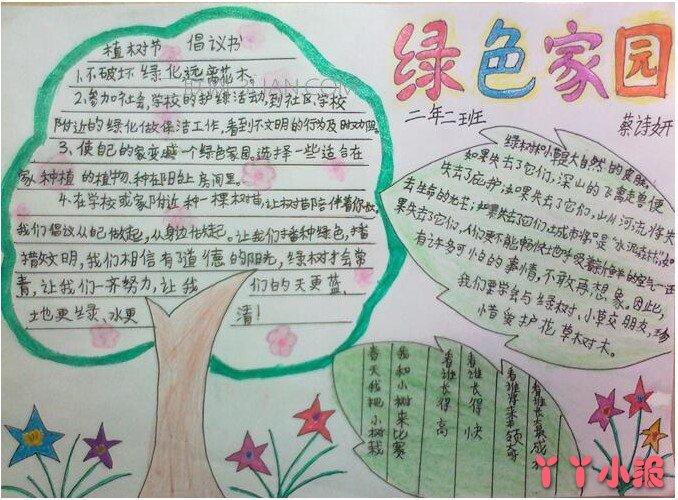 绿色家园
二年二班
蔡诗妍
植树节 倡议书
1.不破坏绿化,远离花木。
2.参加社会,学校的护绿活动,到社区,学校
附近的绿化做保洁工作,看到不文明的行为及时劝阻。
3.使自己的家变成一个绿色家园。选择一些适合在
家种植的植物,种在阳台上房间里。
4.在学校或家附近种一棵树苗,让树苗陪伴着你长。
我们倡议从自己做起,从身边做起。让我们播种绿色,播
撒文明,我们相信有了道德的阳光,绿树才会常
青,让我们一齐努力,让我们的天更蓝,
地更绿、水更清!
绿树林小草是大自然的皮肤。
如果失去了它们,深山的飞禽走兽便
失去了庇护;如果失去了它们,山川河流将失
去生命的光芒;如果失去了它们,城市将只是“水泥森林”;如
果失去了它们,人们更不能畅快地呼吸新鲜的空气…还
有许多可怕的事情,不敢再想象。因此,
我们要学会与绿树、小草交朋友,珍
惜爱护花草树木。
春天我把小树栽
我和小树来比赛
看谁长得高
看谁长得快
看谁将来
看谁长大最
丫丫小报